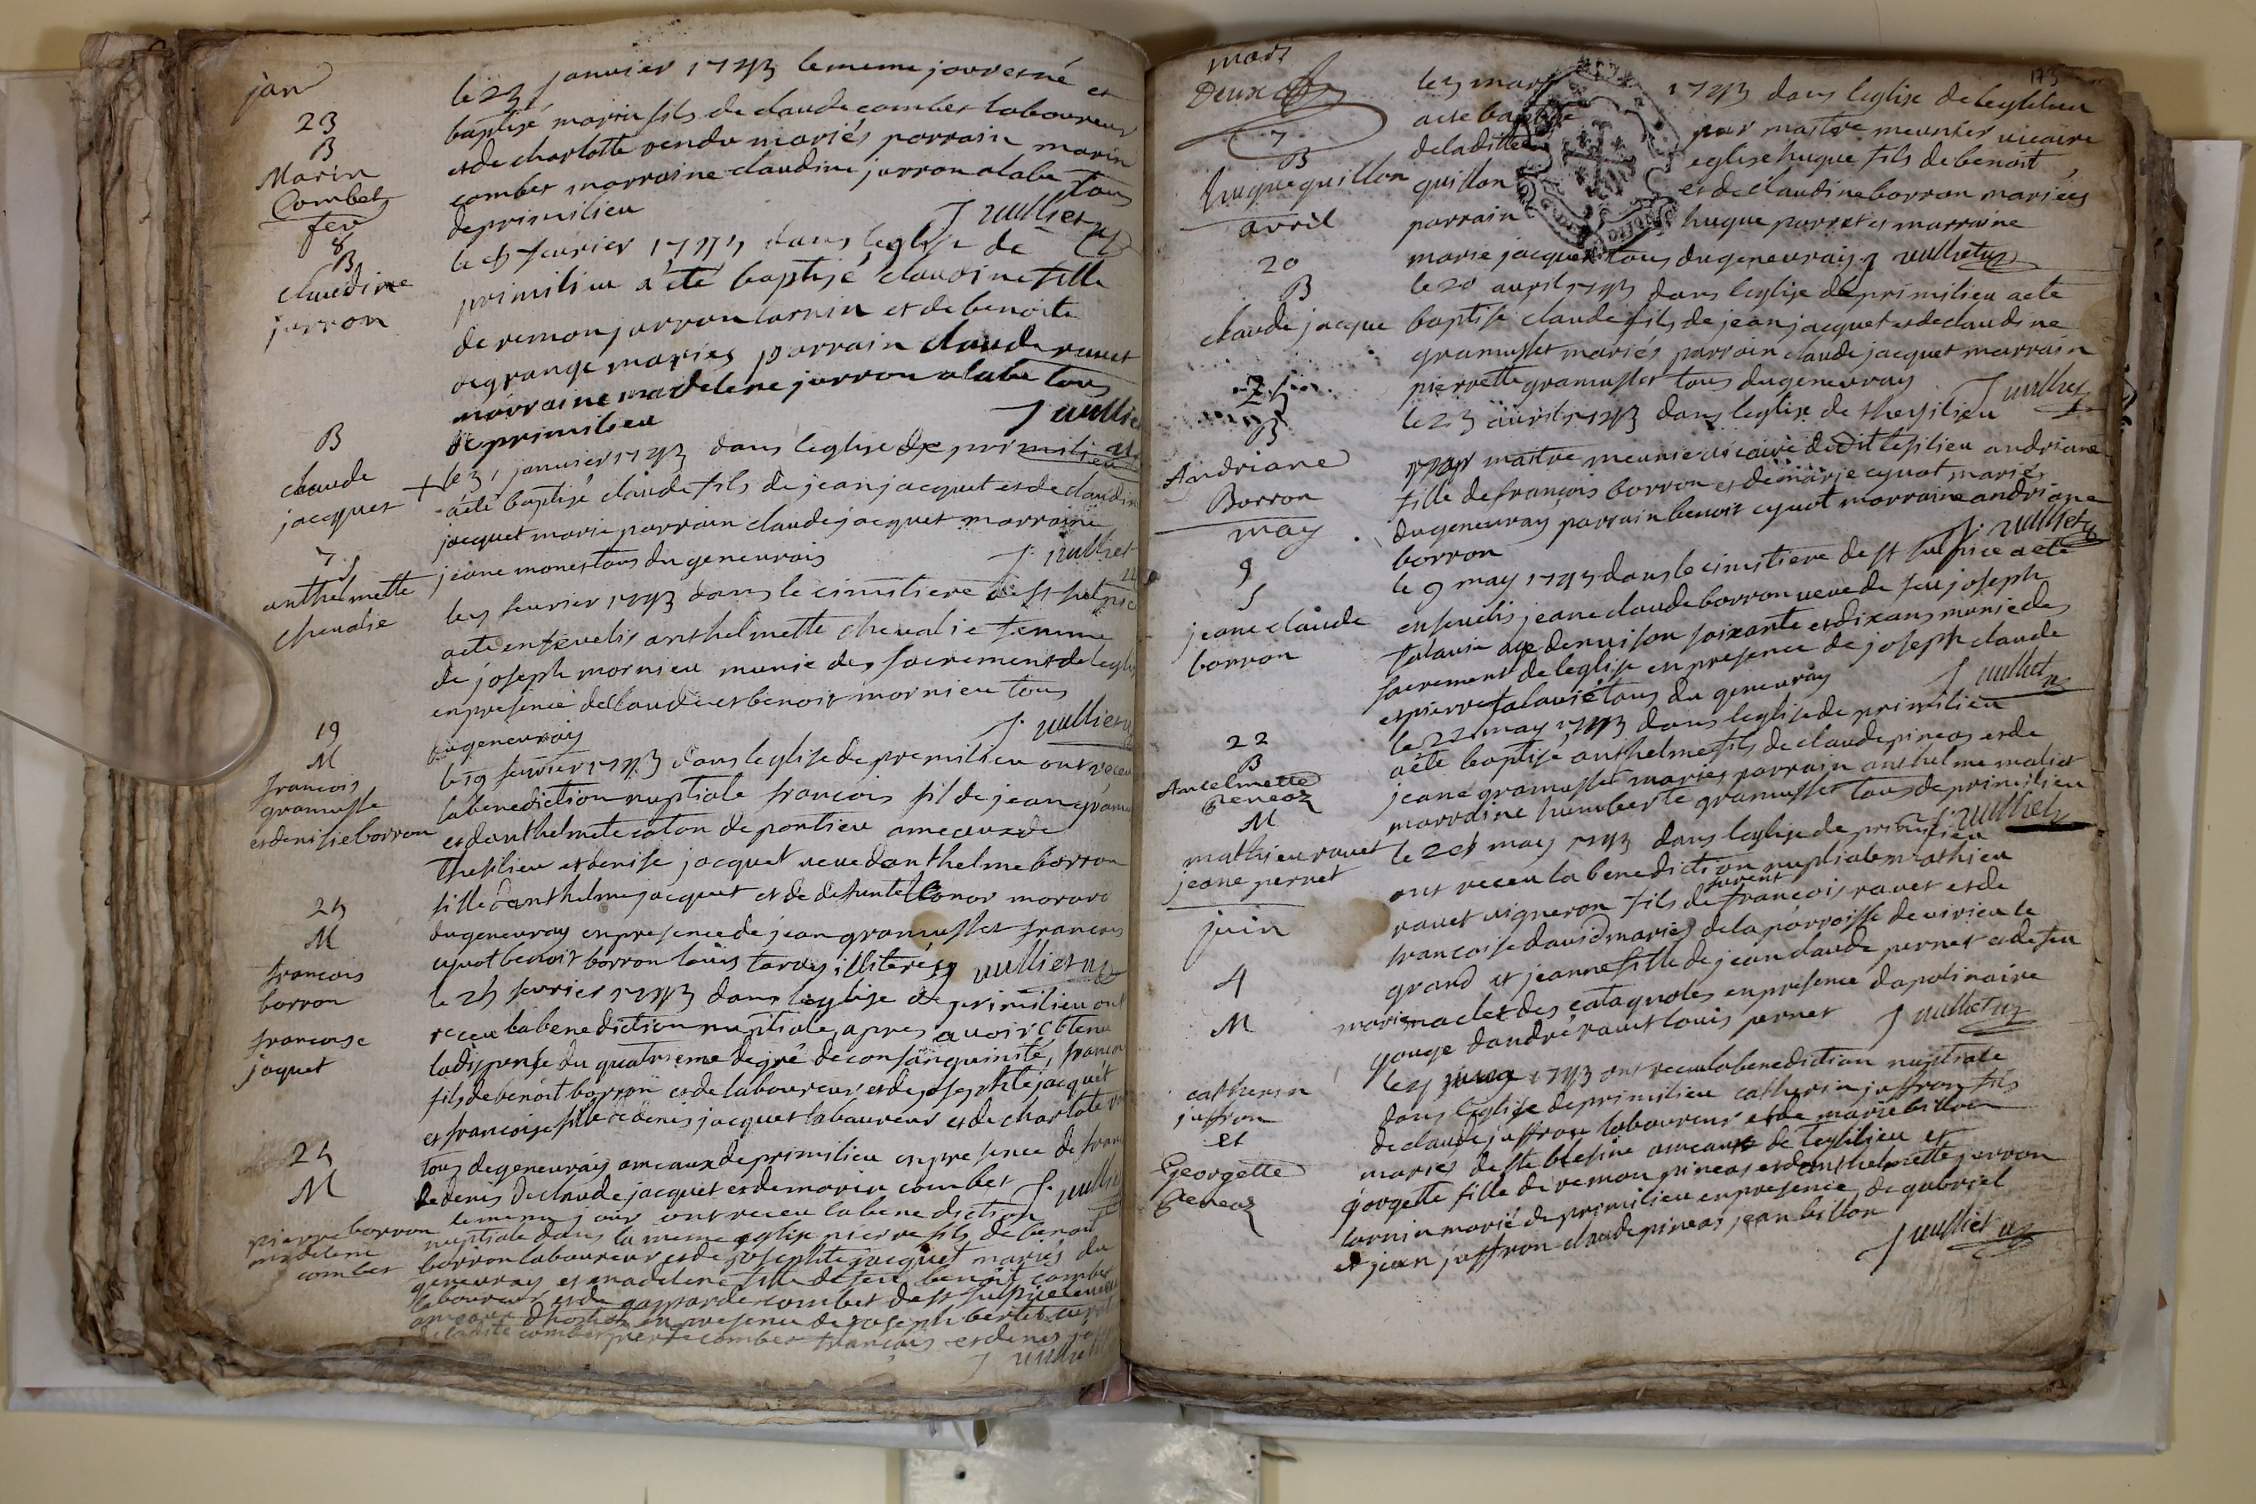 jan
23
B
Marin
Combet
le 23 janvier 1743 le meme jour est né et
baptisé marin fils de claude combet laboureur
et de charlotte rendu mariés parrain marin
combet marraine claudine jurron alabe tous
de primilieu
J vulliet
fev
8
B
claudine
jurron
le fevrier dans leglise de
primilieu a été baptisé claudine fille
de remon jurron larnin et de benoite
degrange mariés parrain claude ravet
marraine madelene jurron alabe tous
de primilieu
J vulliet
B
claude
jacquet
le 31 janvier 1743 dans leglise de primilieu
a été baptisé claude fils de jean jacquet et de claudine
jacquet marie parrain claude jacquet marraine
jeane monet tous du genevrais
J. vulliet
7. s
anthelmette
chevalie
le 7 fevrier 1743 dans le cimitiere de st sulpice
a eté ensevelis anthelmette chevalie femme
de joseph mornieu munie des sacrement de leglise
en presence de claude et benoit mornieu tous
du genevray
J. vulliet
19
M
francois
gramusse
et denisie borron
le 19 fevrier 1743 dans leglise de premilieu ont receu
la benediction nuptiale francois fil de jean gramu
et danthelmete caton de pontieu ameaux de
thesilieu et denise jacquet veve danthelme borron
fille danthelme jacquet et de defunte leonor morard
du genevray en presence de jean gramusset francois
cynot benoit borron louis tardy illiterés J vulliet
25
M
francois
borron
francoise
jaquet
le 25 fevrier 1743 dans leglise de primilieu ont
receu la benediction nuptiale apres avoir obtenu
la dispense du quatrieme degré de consanguinité, francois
fils de benoit borron et de laboureur et de josephte jacquet
et francoise fille de denis jacquet laboureur et de charlote
tous de genevray ameaux de primilieu en presence de
de denis de claude jacquet et de marin combet J. vulliet
25
M
pierre borron
madelene
combet
le meme jour ont receu la benediction
nuptiale dans la meme eglise pierre fils de benoit
borron laboureur et de josephte jacquet mariés du
genevray et madelene fille de feu benoit combet
laboureur et de gasparde combet de st sulpice
ameaux en presence de joseph bertet
combet pierre combet francois et denis
J vulliet
173
mars
Deux
7
B
hugue guillon
le 7 mars 1743 dans leglise de leglilieu
a eté baptisé par maitre meunier vicaire
de la ditte eglise hugue fils de benoit
guillon et de claudine borron mariés
parrain hugue porret et marraine
marie jacquet tous du genevray J vulliet
avril
20
B
claude jacque
le 20 avril 1743 dans leglise de primilieu a eté
baptisé claude fils de jean jacquet et de claudine
gramusset mariés parrain claude jacquet marraine
pierrette gramusset tous du genevray
J vulliet
23
B
Andriane
Borron
le 23 avril 1743 dans leglise de thesilieu
par maitre meunier vicaire dudit tesilieu andriane
fille de françois borron et de marie cynot mariés
du genevray parrain benoit cynot marraine andriane
borron
J. vulliet
may
9
S
jeane claude
borron
le 9 may 1743 dans le cimitiere de st sulpice a eté
ensevelis jeane claude borron veve de feu joseph
talavie age denvison soixante et dix ans munie des
sacrement de leglise en presence de joseph claude
et pierre talavie tous du genevray
J vulliet
22
B
Ancelmette
Peneaz
le 22 may 1743 dans leglise de primilieu
a eté baptisé anthelme fils de claude pineas et de
jeane gramusset mariés parrain anthelme maliet
marraine humberte gramusset tous de primilieu
J vulliet
M
mathieu ravet
jeane pernet
le 28 may 1743 dans leglise de primilieu
ont receu la benediction nuptiale mathieu
ravet vigneron fils de furent francois ravet et de
francoise david mariés de la parroisse de virieu le
grand et jeanne fille de jean claude pernet et de feu
marie maclet des catagnoles en presence dapolinaire
gouge dandré ravet louis pernet
J vulliet
juin
4
M
catherin
juffron
et
Georgette
Peneaz
le 4 juin 1743 ont receu la benediction nuptiale
dans leglise de primilieu catherin juffron fils
de claude juffron laboureur et de marie billon
mariés de ste blesine ameaux de leglilieu et
jorgette fille de remon pineas et danthelmette jurron
larnin marié de primilieu en presence de gabriel
et jean juffron claude pineas jean billon
J vulliet